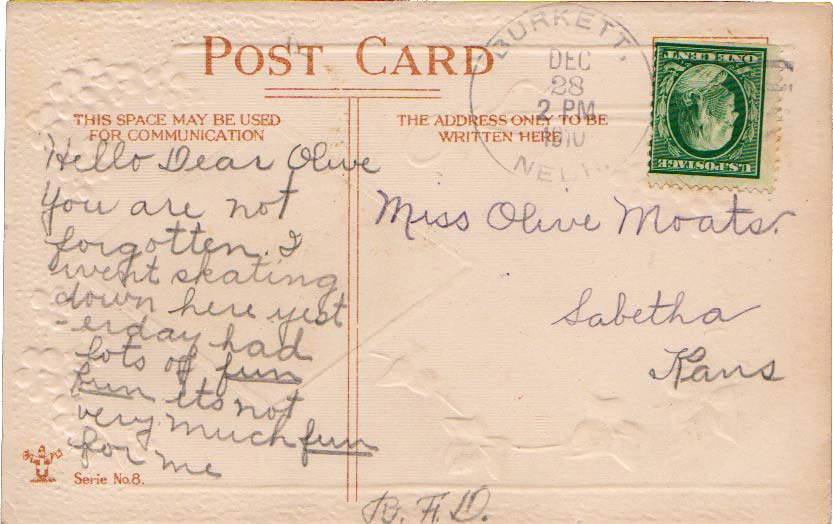 POST CARD
THIS SPACE MAY BE USED
FOR COMMUNICATION
THE ADDRESS ONLY TO BE
WRITTEN HERE
BURKETT.
DEC
28
2 PM
1910
NEBR.
ONE CENT
U.S. POSTAGE
Hello Dear Olive
You are not
forgotten. I
went skating
down here yest
-erday had
lots of fun
fun its not
very much fun
for me
Miss Olive Moats.
Sabetha
Kans
R.F.D.
Serie No. 8.